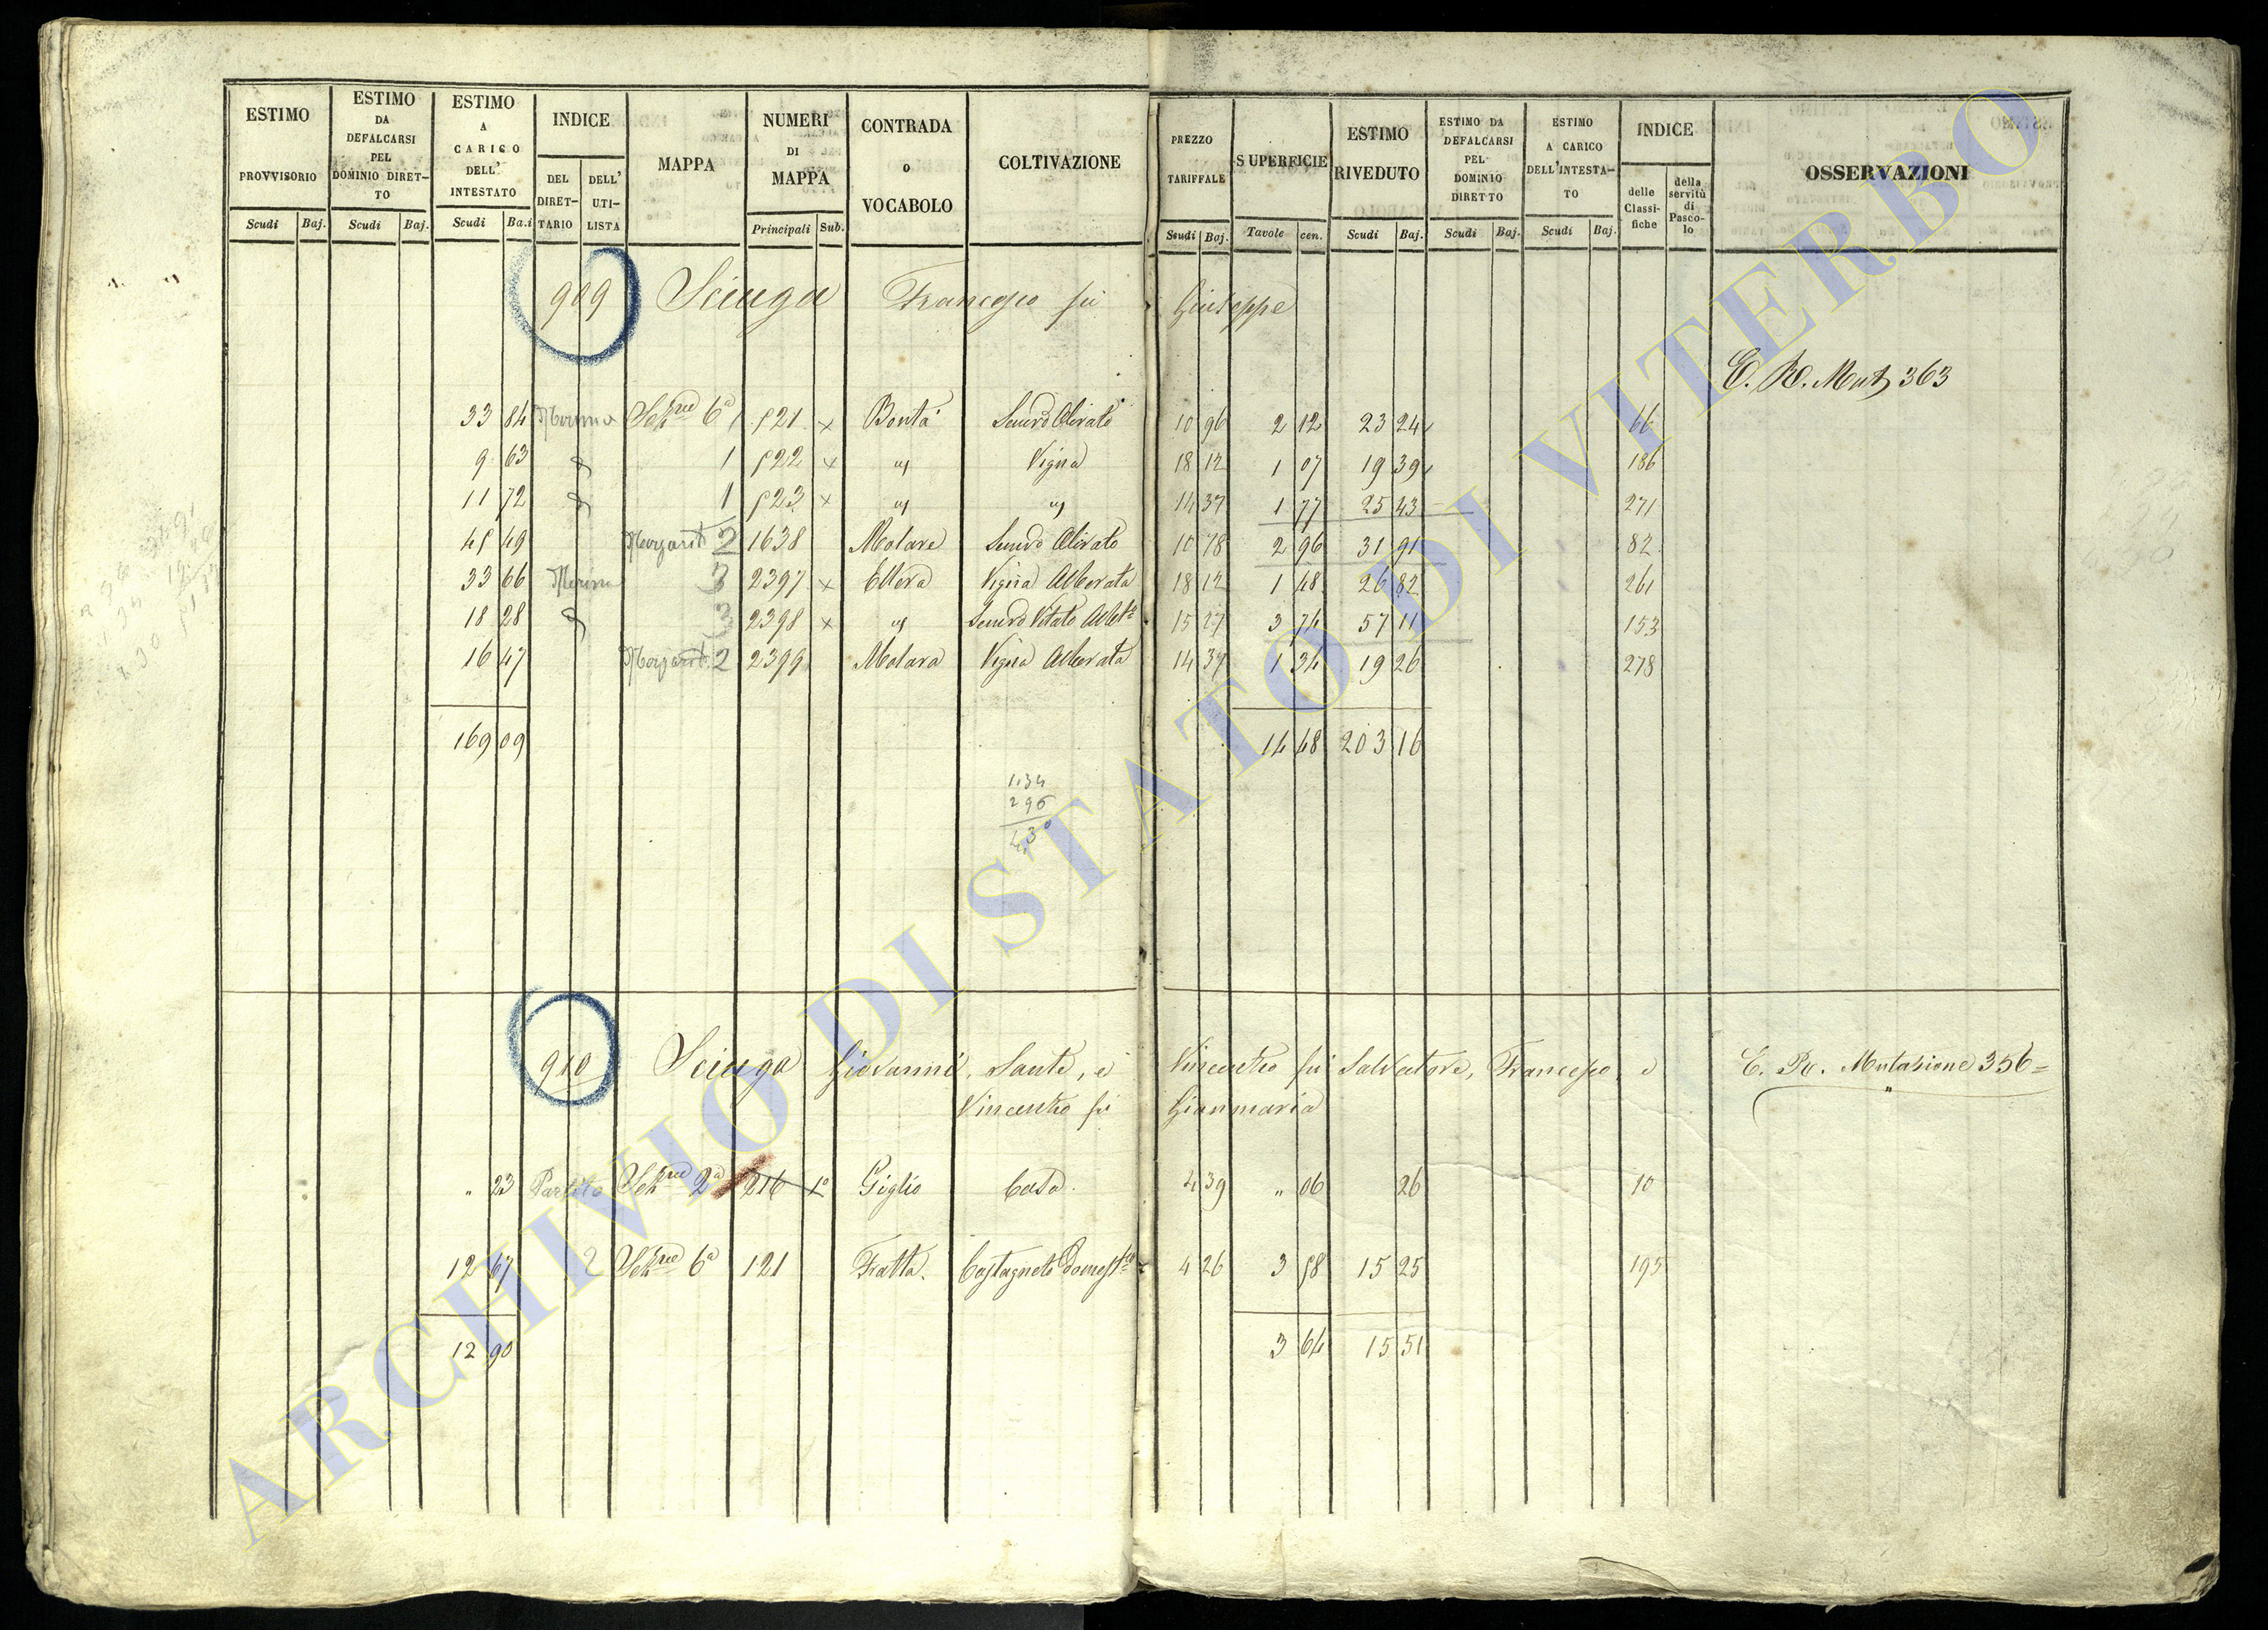 ESTIMO PROVVISORIO Scudi Baj. ESTIMO DA DEFALCARSI PEL DOMINIO DIRETTO Scudi Baj. ESTIMO A CARICO DELL' INTESTATO Scudi Ba.i INDICE DEL DIRETTARIO DELL' UTILISTA MAPPA NUMERI DI MAPPA Principali Sub. CONTRADA o VOCABOLO COLTIVAZIONE PREZZO TARIFFALE Scudi Baj. SUPERFICIE Tavole cen. ESTIMO RIVEDUTO Scudi Baj. ESTIMO DA DEFALCARSI PEL DOMINIO DIRETTO Scudi Baj. ESTIMO A CARICO DELL'INTESTATO Scudi Baj. INDICE delle Classifiche della servitù di Pascolo OSSERVAZIONI
909 Sciuga Francesco fu Giuseppe
33 84 6a 521 x Bontà Semvo Olivato 10 96 2 12 23 24 66
9 63 1 522 x Vigna 18 12 1 07 19 39 186
11 72 1 523 x 14 37 1 77 25 43 271
45 49 2 1638 Molare Semvo Olivato 10 78 2 96 31 91 82
33 66 3 2397 x Ellera Vigna Alberata 18 12 1 48 26 82 261
18 28 3 2398 x Semvo Vitato 15 27 3 74 57 11 153
16 47 2 2399 Molara Vigna Alberata 14 37 1 34 19 26 278
169 09 14 48 203 16
1,34
2 96
4,30
910 Sciuga Giovanni, Sante, e Vincenzo fu Salvatore, Francesco, e
Vincenzo fu Gianmaria
" 23 2a 216 1o Giglio Casa 4 39 " 06 26 10
12 67 2 6a 121 Fratta. Castagneto Domestco 4 26 3 58 15 25 195
12 90 3 64 15 51
Mut 363
Mutazione 356 =
ARCHIVIO DI STATO DI VITERBO